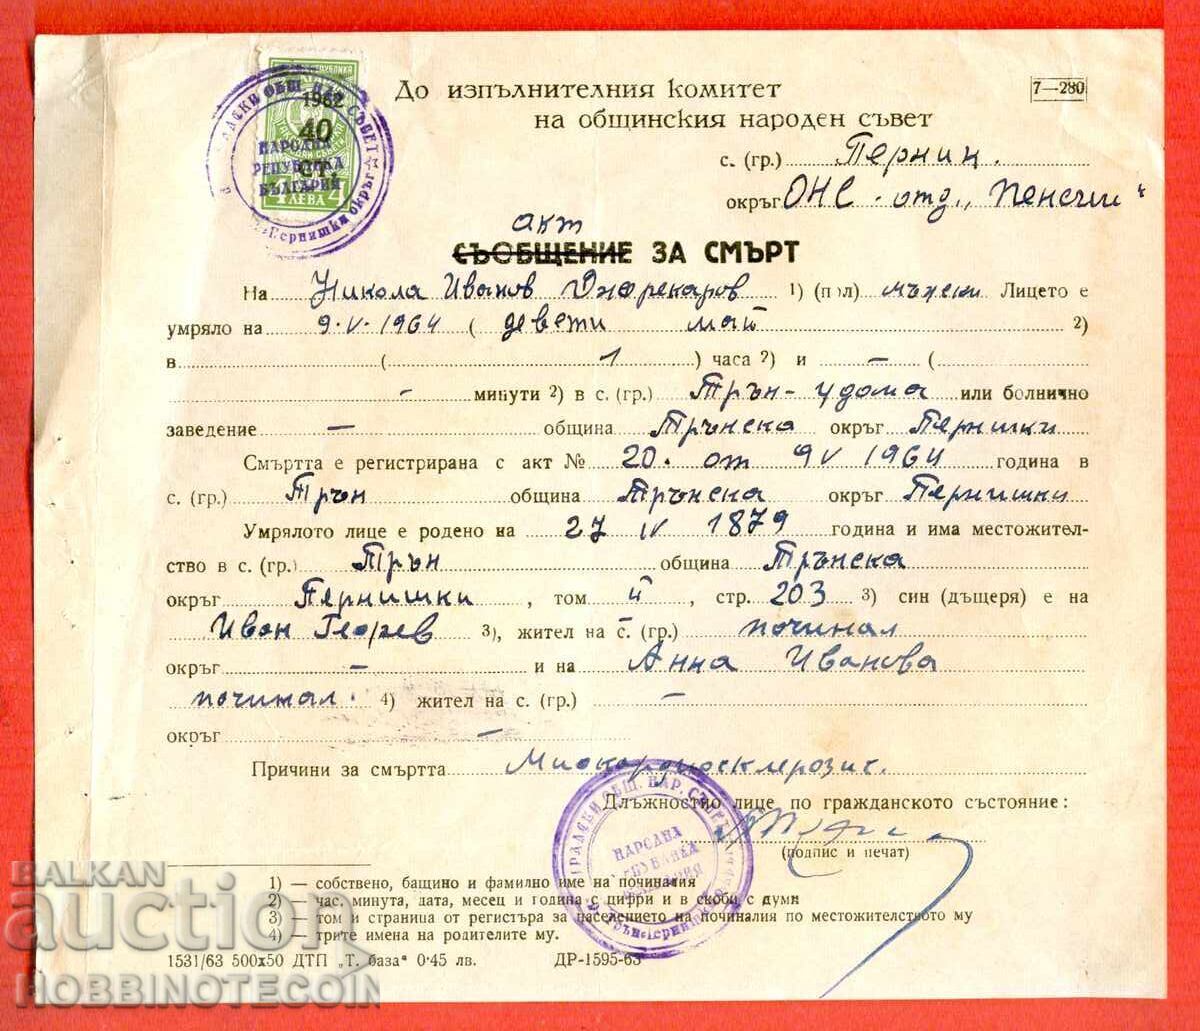 До изпълнителния комитет
7—280
на общинския народен съвет
с. (гр.) Перник.
округ ОНС - отд. „Пенсии"
акт
СЪОБЩЕНИЕ ЗА СМЪРТ
На Никола Иванов 1) (пол) мъжски Лицето е
умряло на 9·V·1964 ( девети май 2)
в ( 1 ) часа 2) и — (
- минути 2) в с. (гр.) Трън - у дома или болнично
заведение — община Трънска округ Пернишки
Смъртта е регистрирана с акт № 20. от 9 V 1964 година в
с. (гр.) Трън община Трънска округ Пернишки
Умрялото лице е родено на 27 IV 1879 година и има местожител-
ство в с. (гр.) Трън община Трънска
округ Пернишки, том II, стр. 203 3) син (дъщеря) е на
Иван Георев 3), жител на с. (гр.) починал
округ — и на Анна Иванова
починал. 4) жител на с. (гр.) —
округ —
Причини за смъртта Миокардиосклерозис.
Длъжностно лице по гражданското състояние:
(подпис и печат)
1) — собствено, бащино и фамилно име на починалия
2) — час. минута, дата, месец и година с цифри и в скоби с думи
3) — том и страница от регистъра за населението на починалия по местожителството му
4) — трите имена на родителите му.
1531/63 500х50 ДТП „Т. база" 0·45 лв. ДР-1595-63
1962
40
СТ.
НАРОДНА
РЕПУБЛИКА
БЪЛГАРИЯ
4 ЛЕВА 4
НАРОДНА
BALKAN
auction
HOBBINOTECOIN